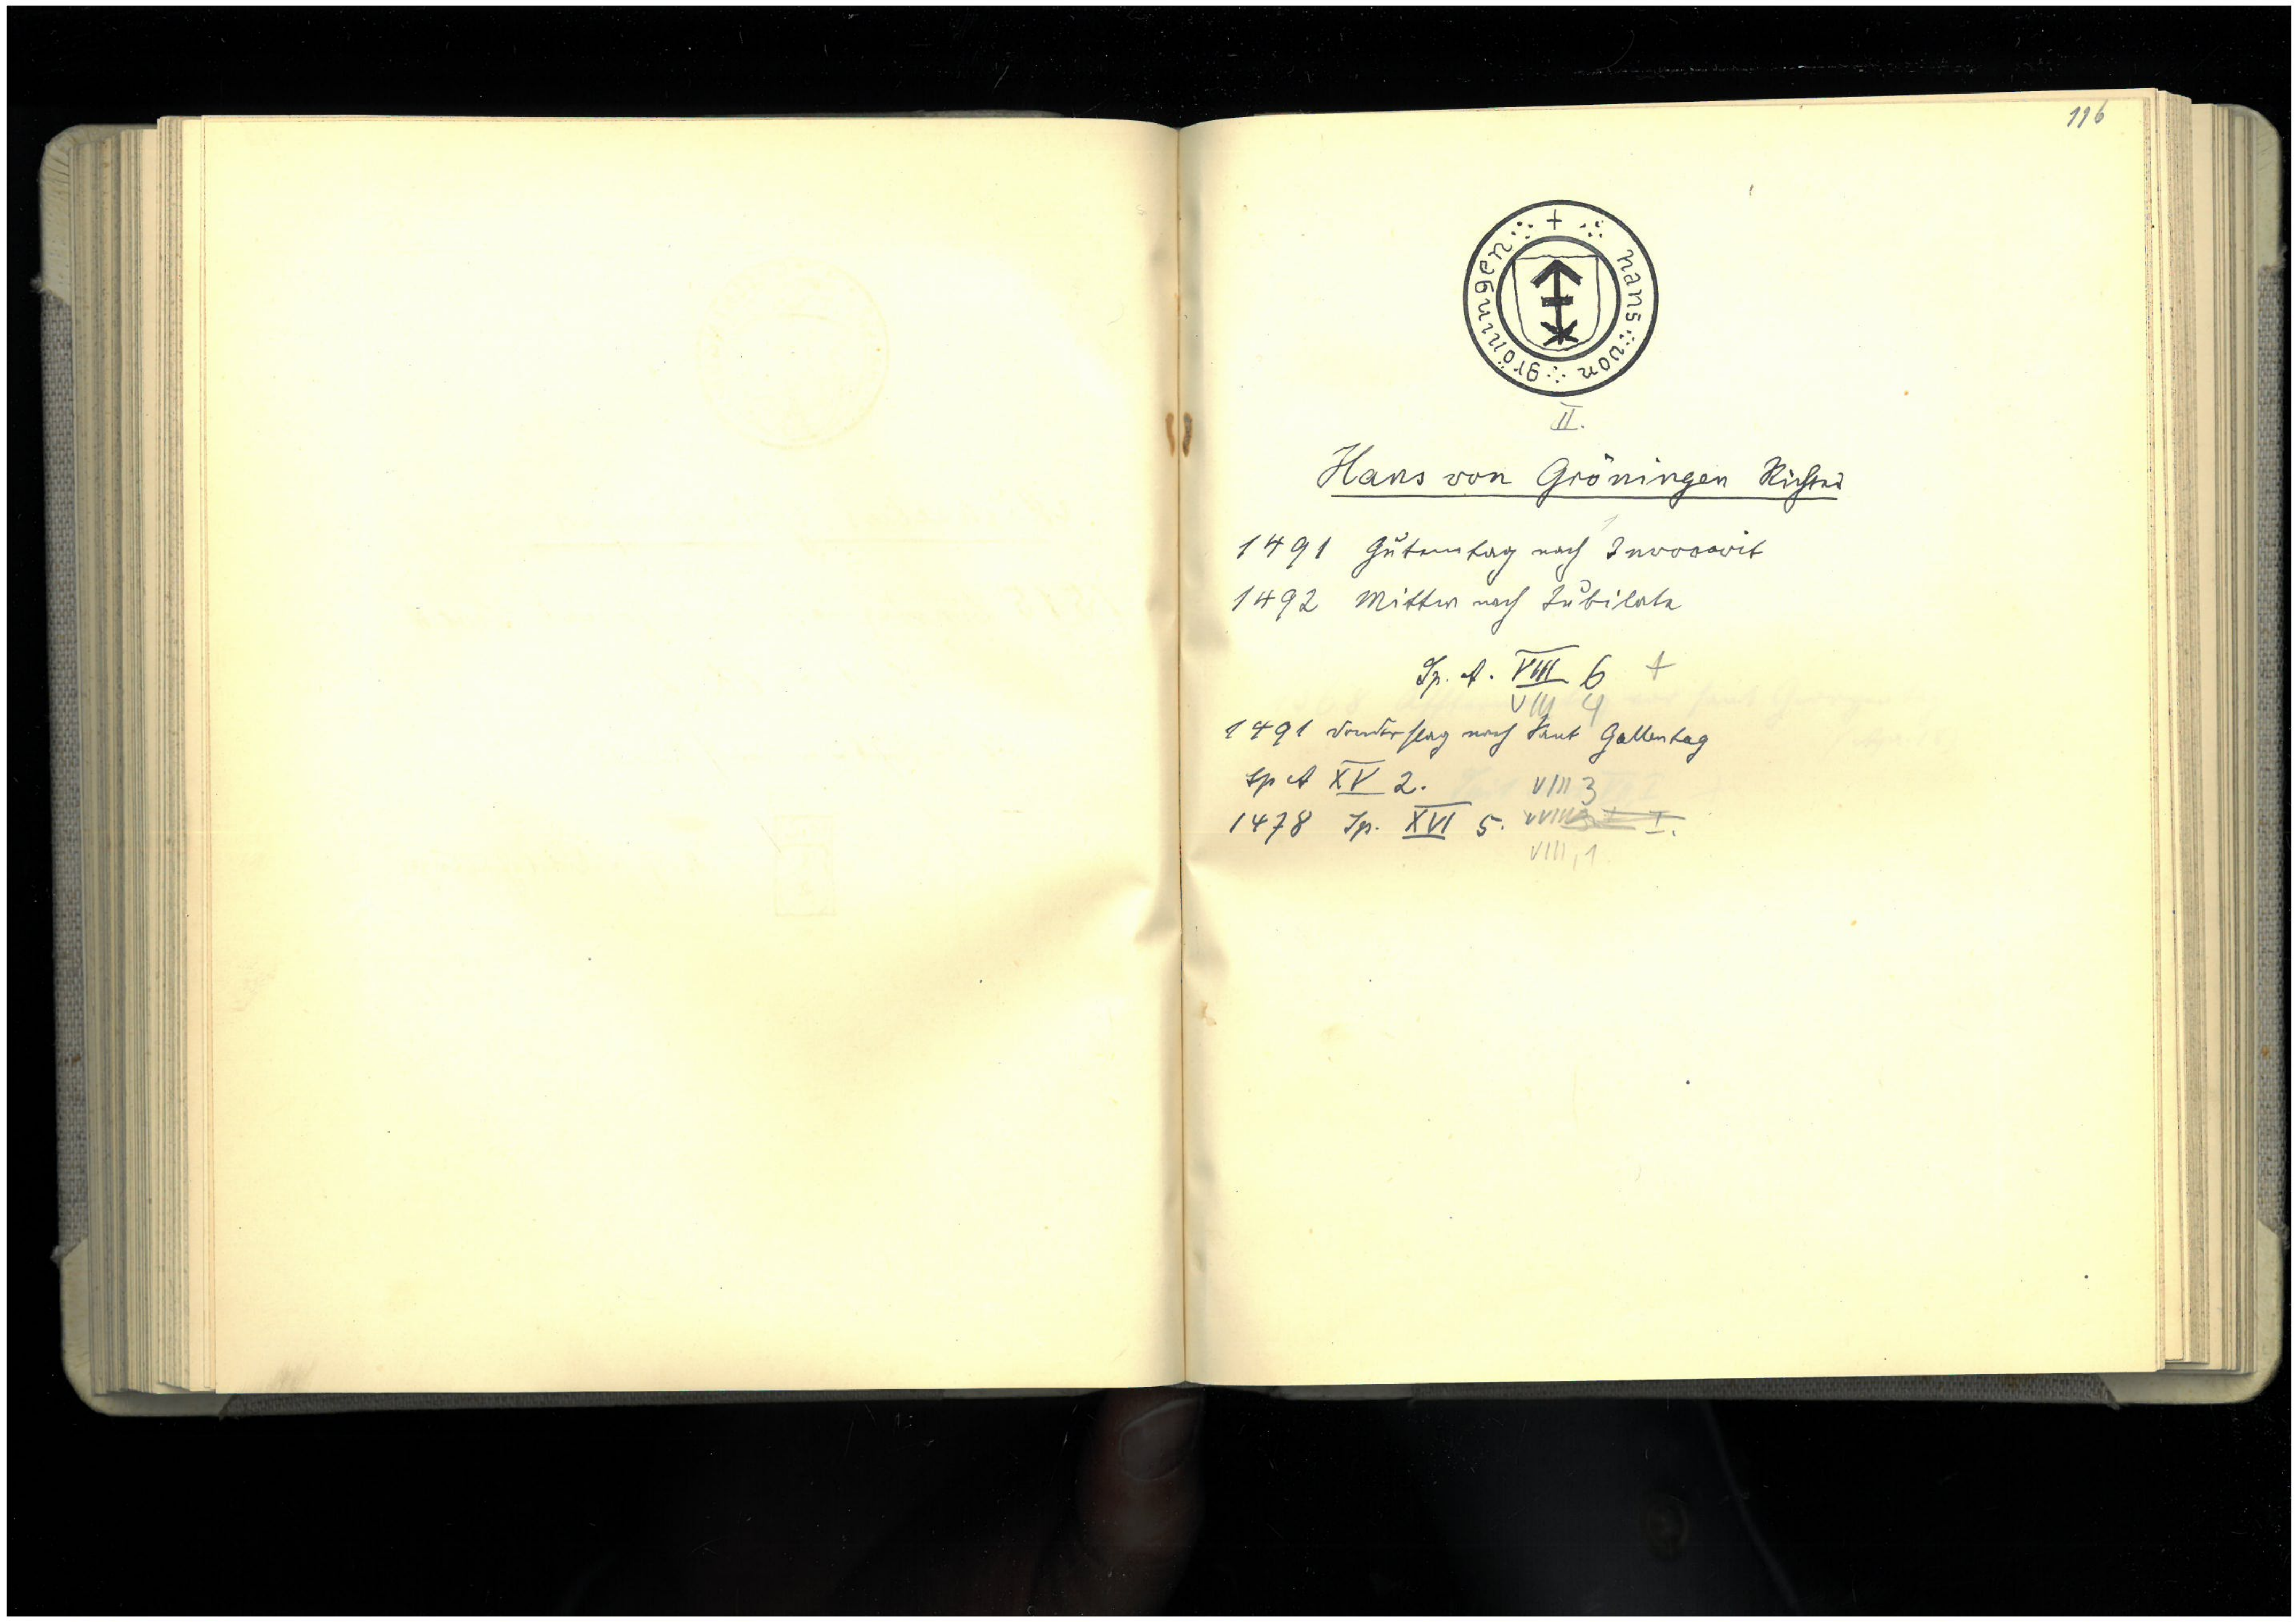 116
+ hans von gröningen
II.
Hans von Gröningen Richter
1491 Gutemtag nach Invocavit
1492 Mittw nach Jubilate
Sp. A. VIII 6 +
VIII 4
1491 Donderstag nach Sant Gallentag
Sp A XV 2. VIII 3
1478 Sp. XVI 5.
VIII, 1